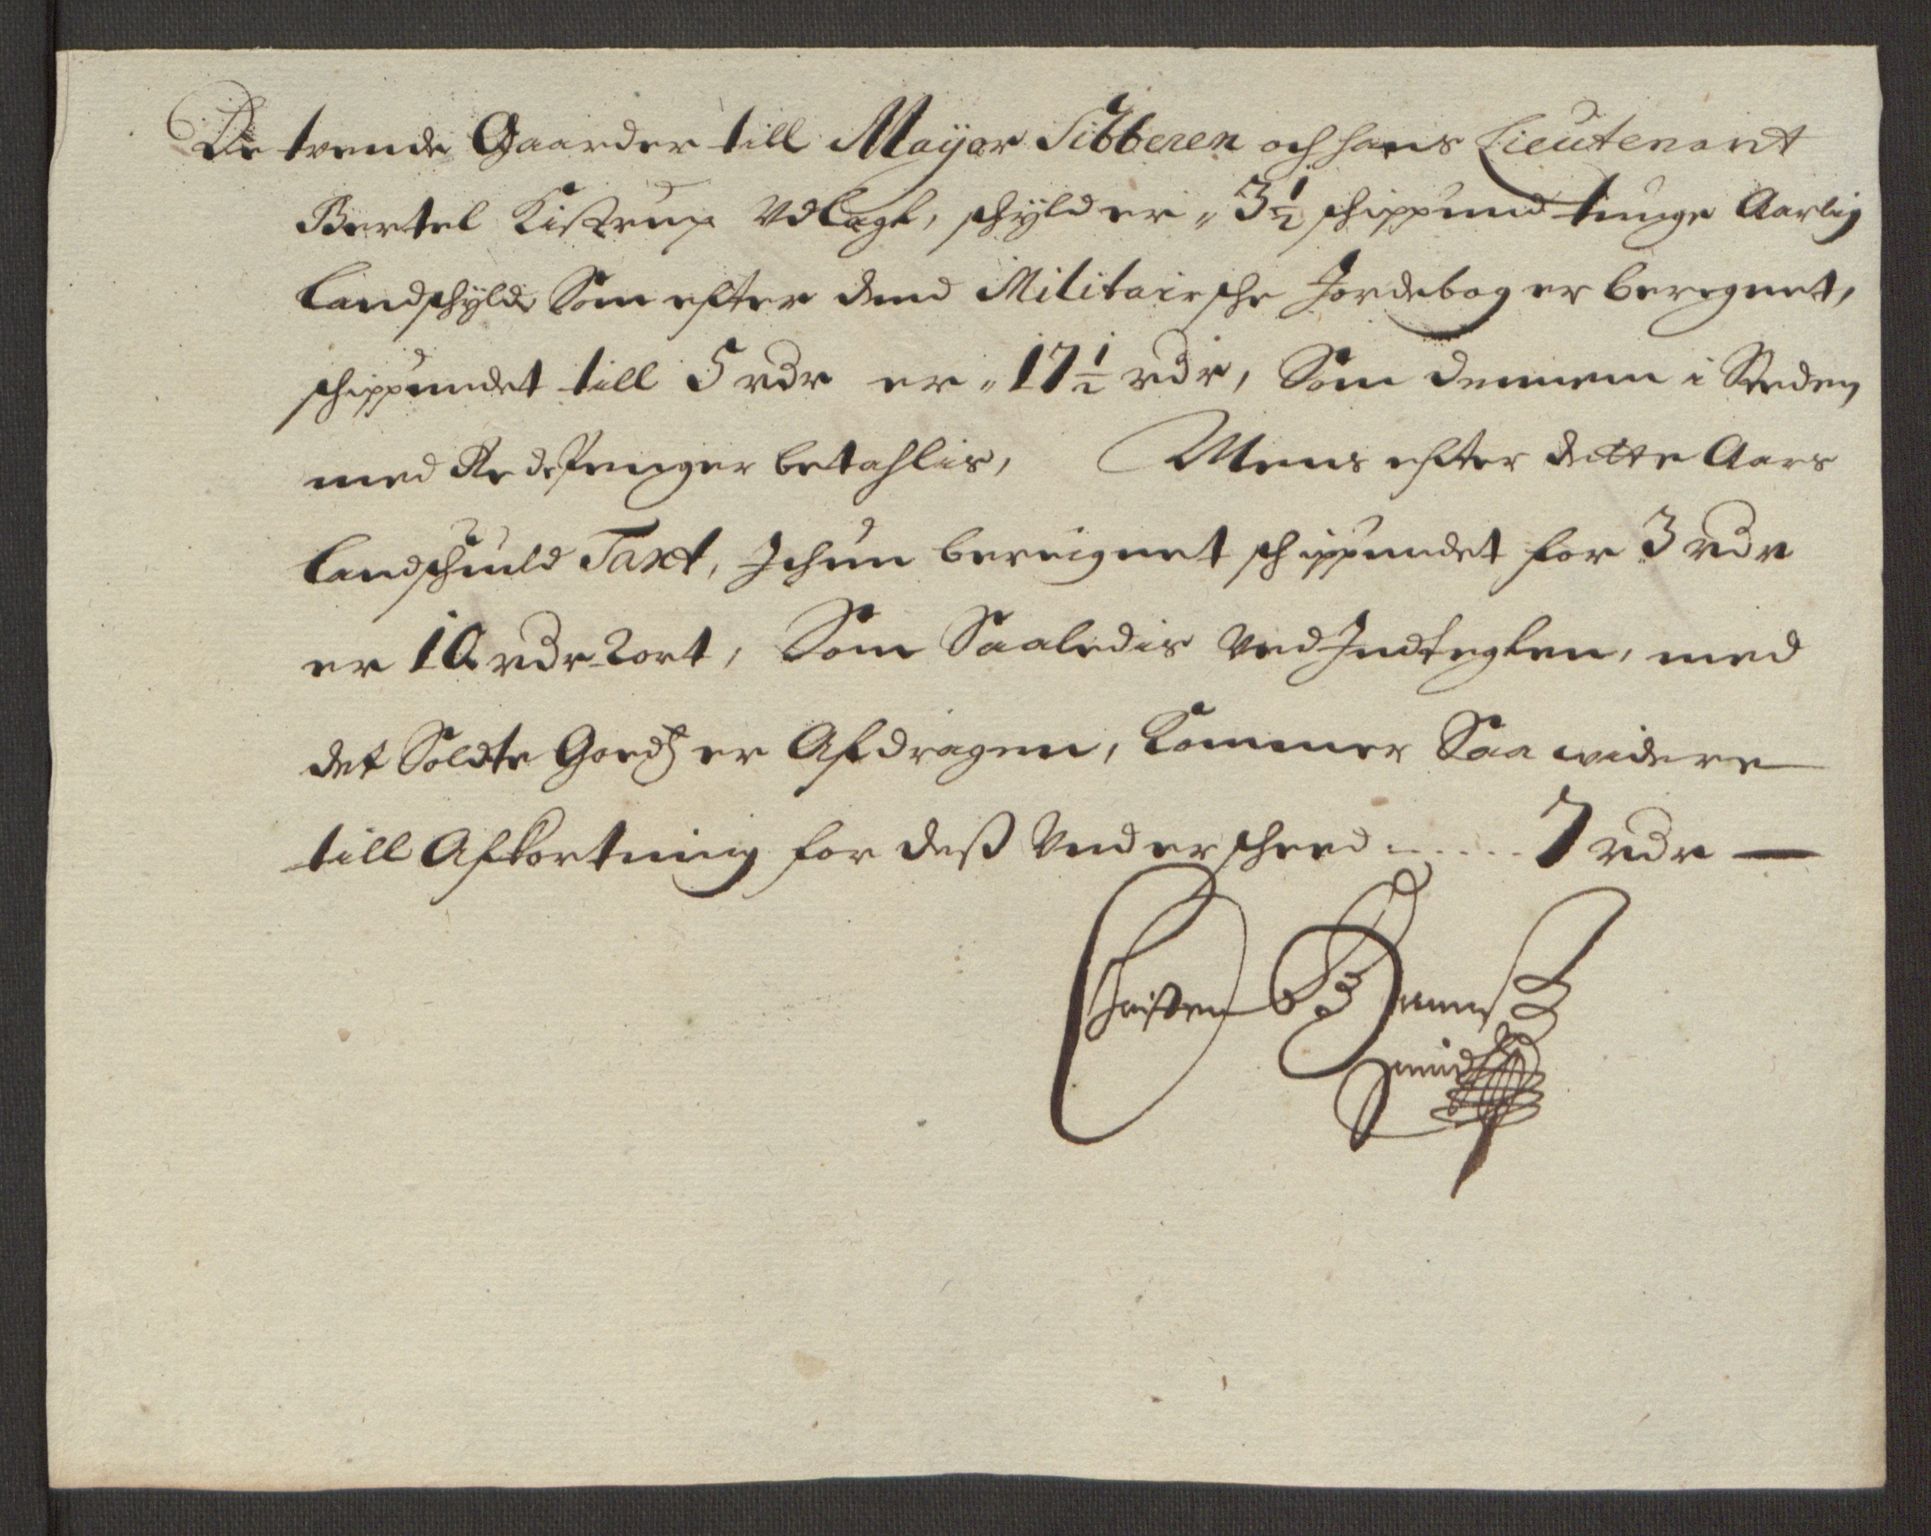 De trende Gaarder till Mayor Sibberen och hans Lieutenant
Bertel Kistrup Vdlagt, schylder „ 3½ schippund tunge Aarlig
Landschyld Som efter dend Militairsche Jordebog er beregnet,
schippundet till 5 rdr er „ 17½ rdr, Som dennem i Steden
med Rede Penger betahlis, Mens efter dette Aars
Landschuld Taxt, Ichun bereignet schippundet for 3 rdr
er 10 rdr 2 ort, Som Saaledis Ved Indtegten, med
det Soldte Goedß er Afdragen, Kommer Saa widere
till Afkortning for deß Underscheed ...... 7 rdr —
Christen